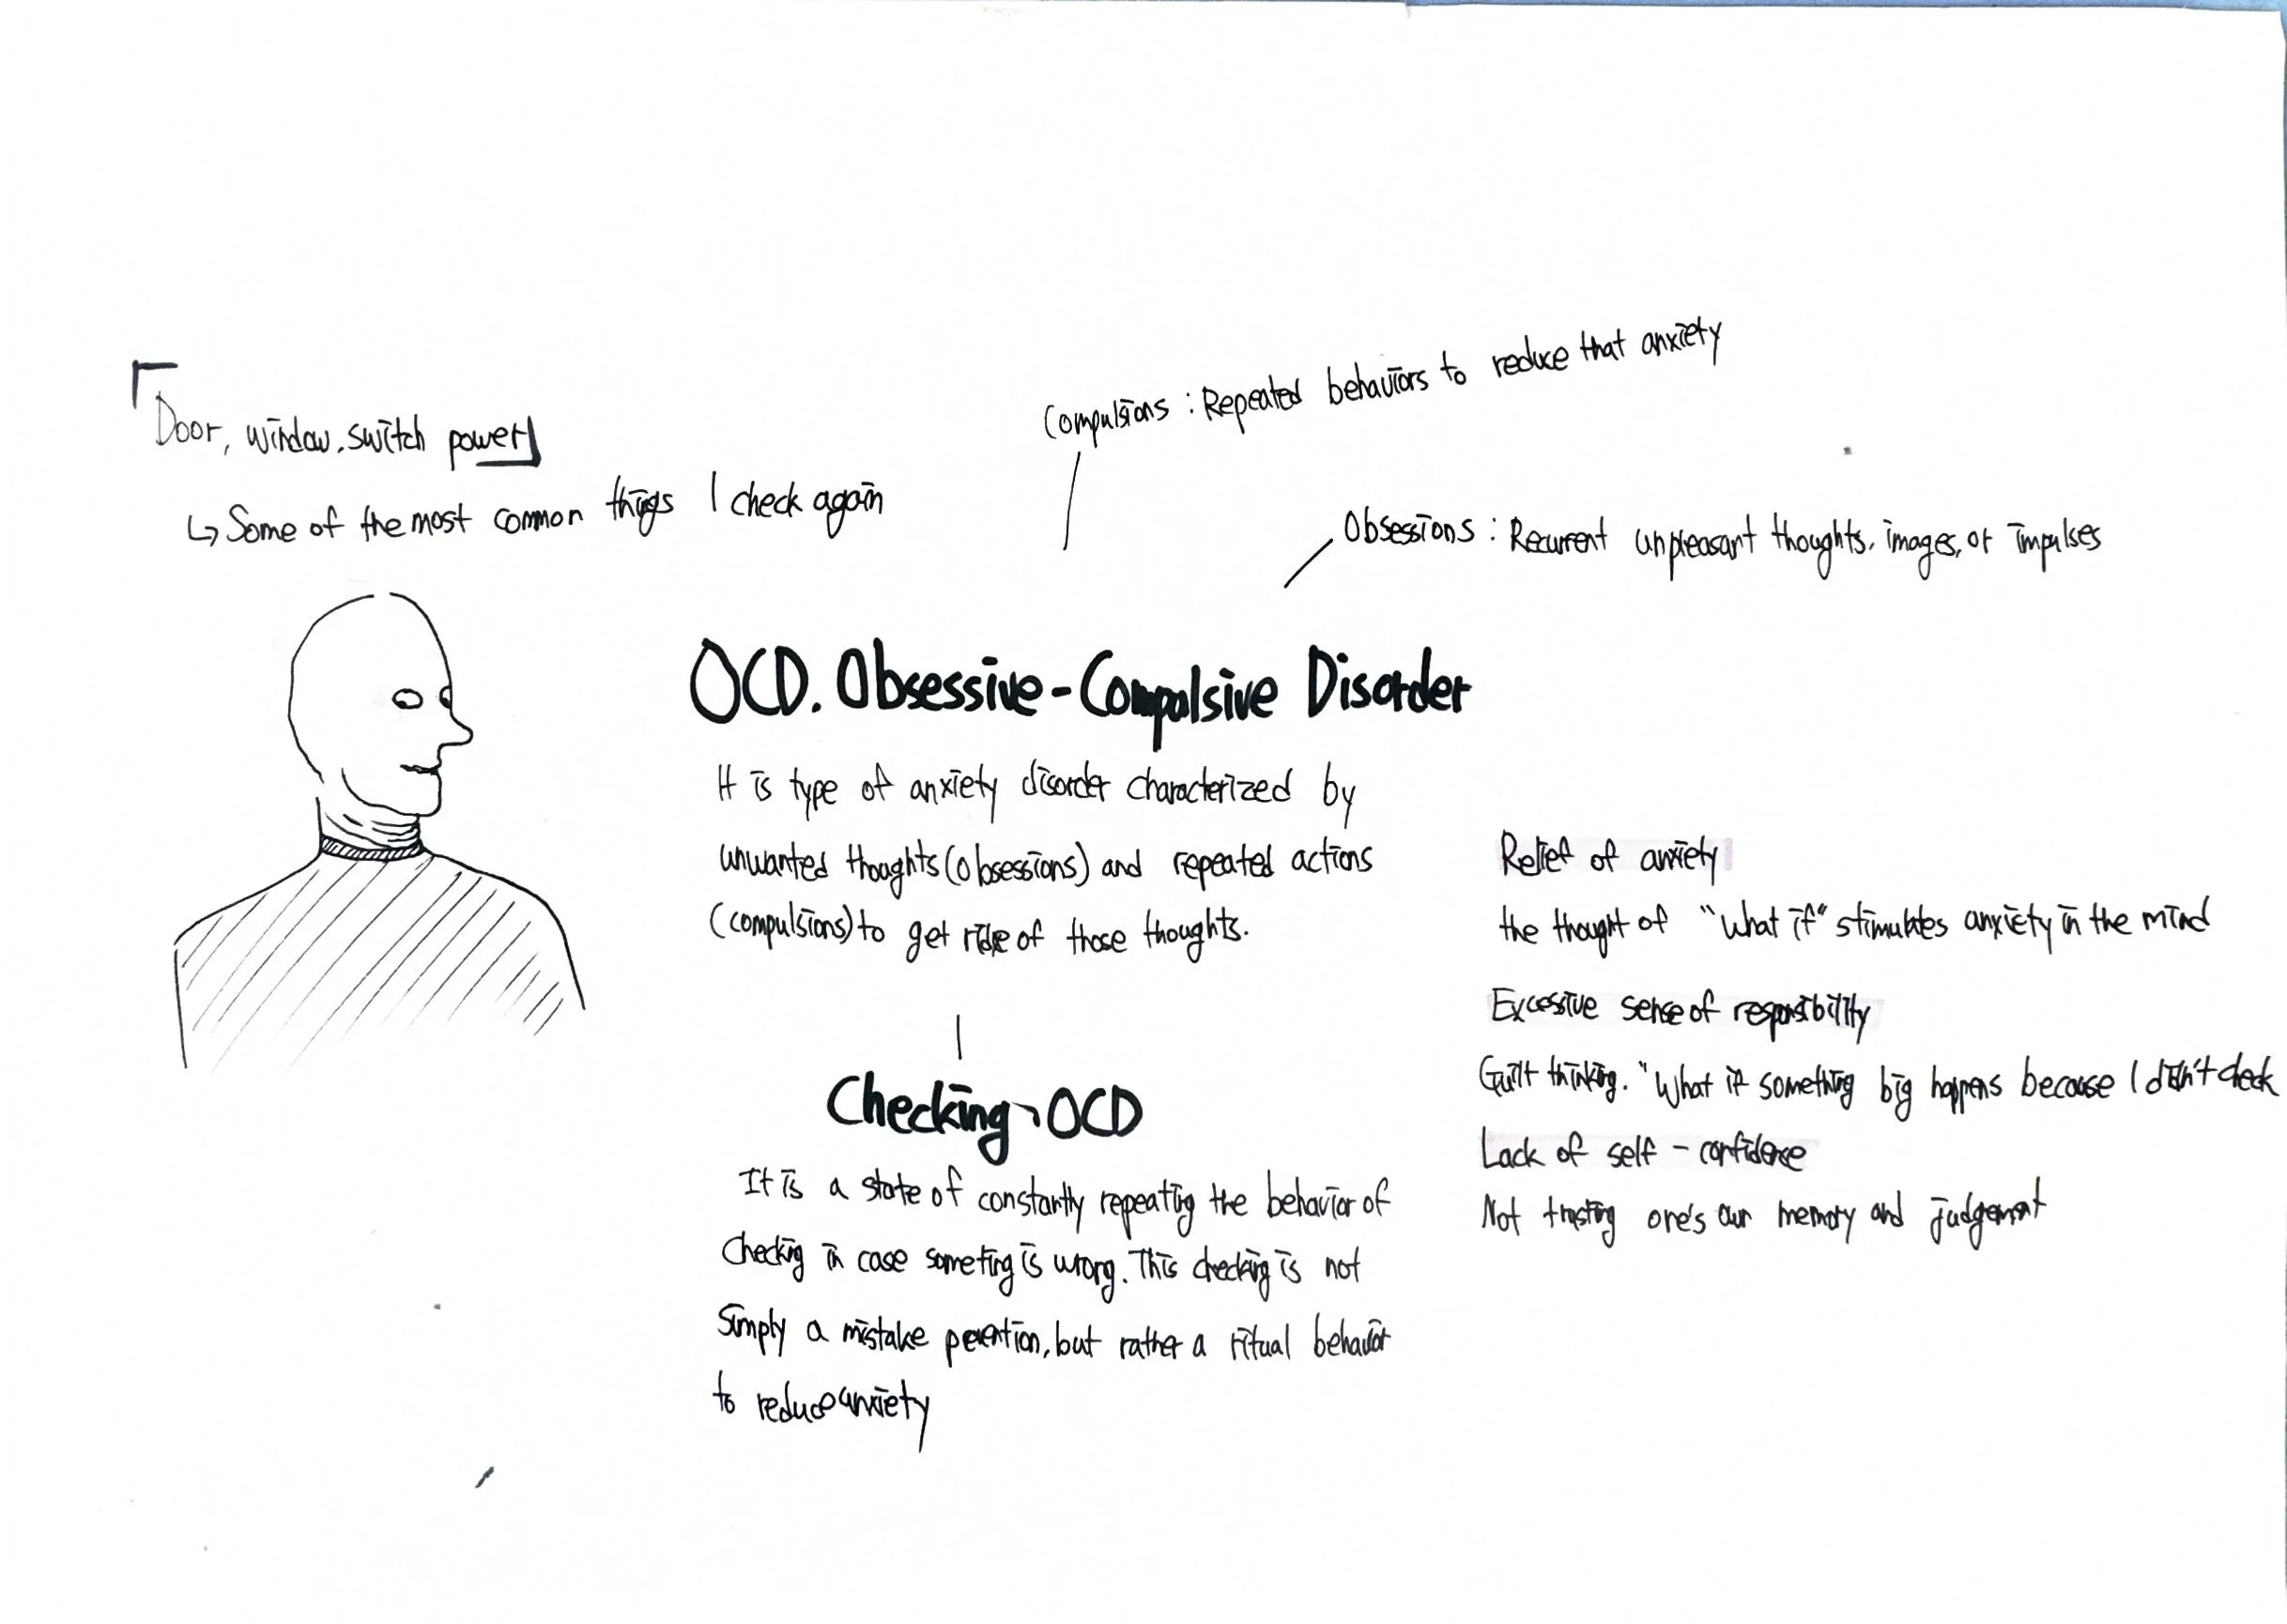 「Door, window, switch power」
↳ Some of the most common things I check again
Compulsions : Repeated behaviors to reduce that anxiety
Obsessions : Recurrent unpleasant thoughts, images, or impulses
OCD. Obsessive-Compulsive Disorder
It is type of anxiety disorder characterized by
unwanted thoughts (obsessions) and repeated actions
(compulsions) to get ride of those thoughts.
Checking OCD
It is a state of constantly repeating the behavior of
checking in case someting is wrong. This checking is not
Simply a mistake pevention, but rather a ritual behavior
to reduce anxiety
Relief of anxiety
the thought of "What if" stimulates anxiety in the mind
Excessive sense of responsibility
Guilt thinking. "What if something big happens because I didn't check
Lack of self-confidence
Not trusting one's own memory and judgement